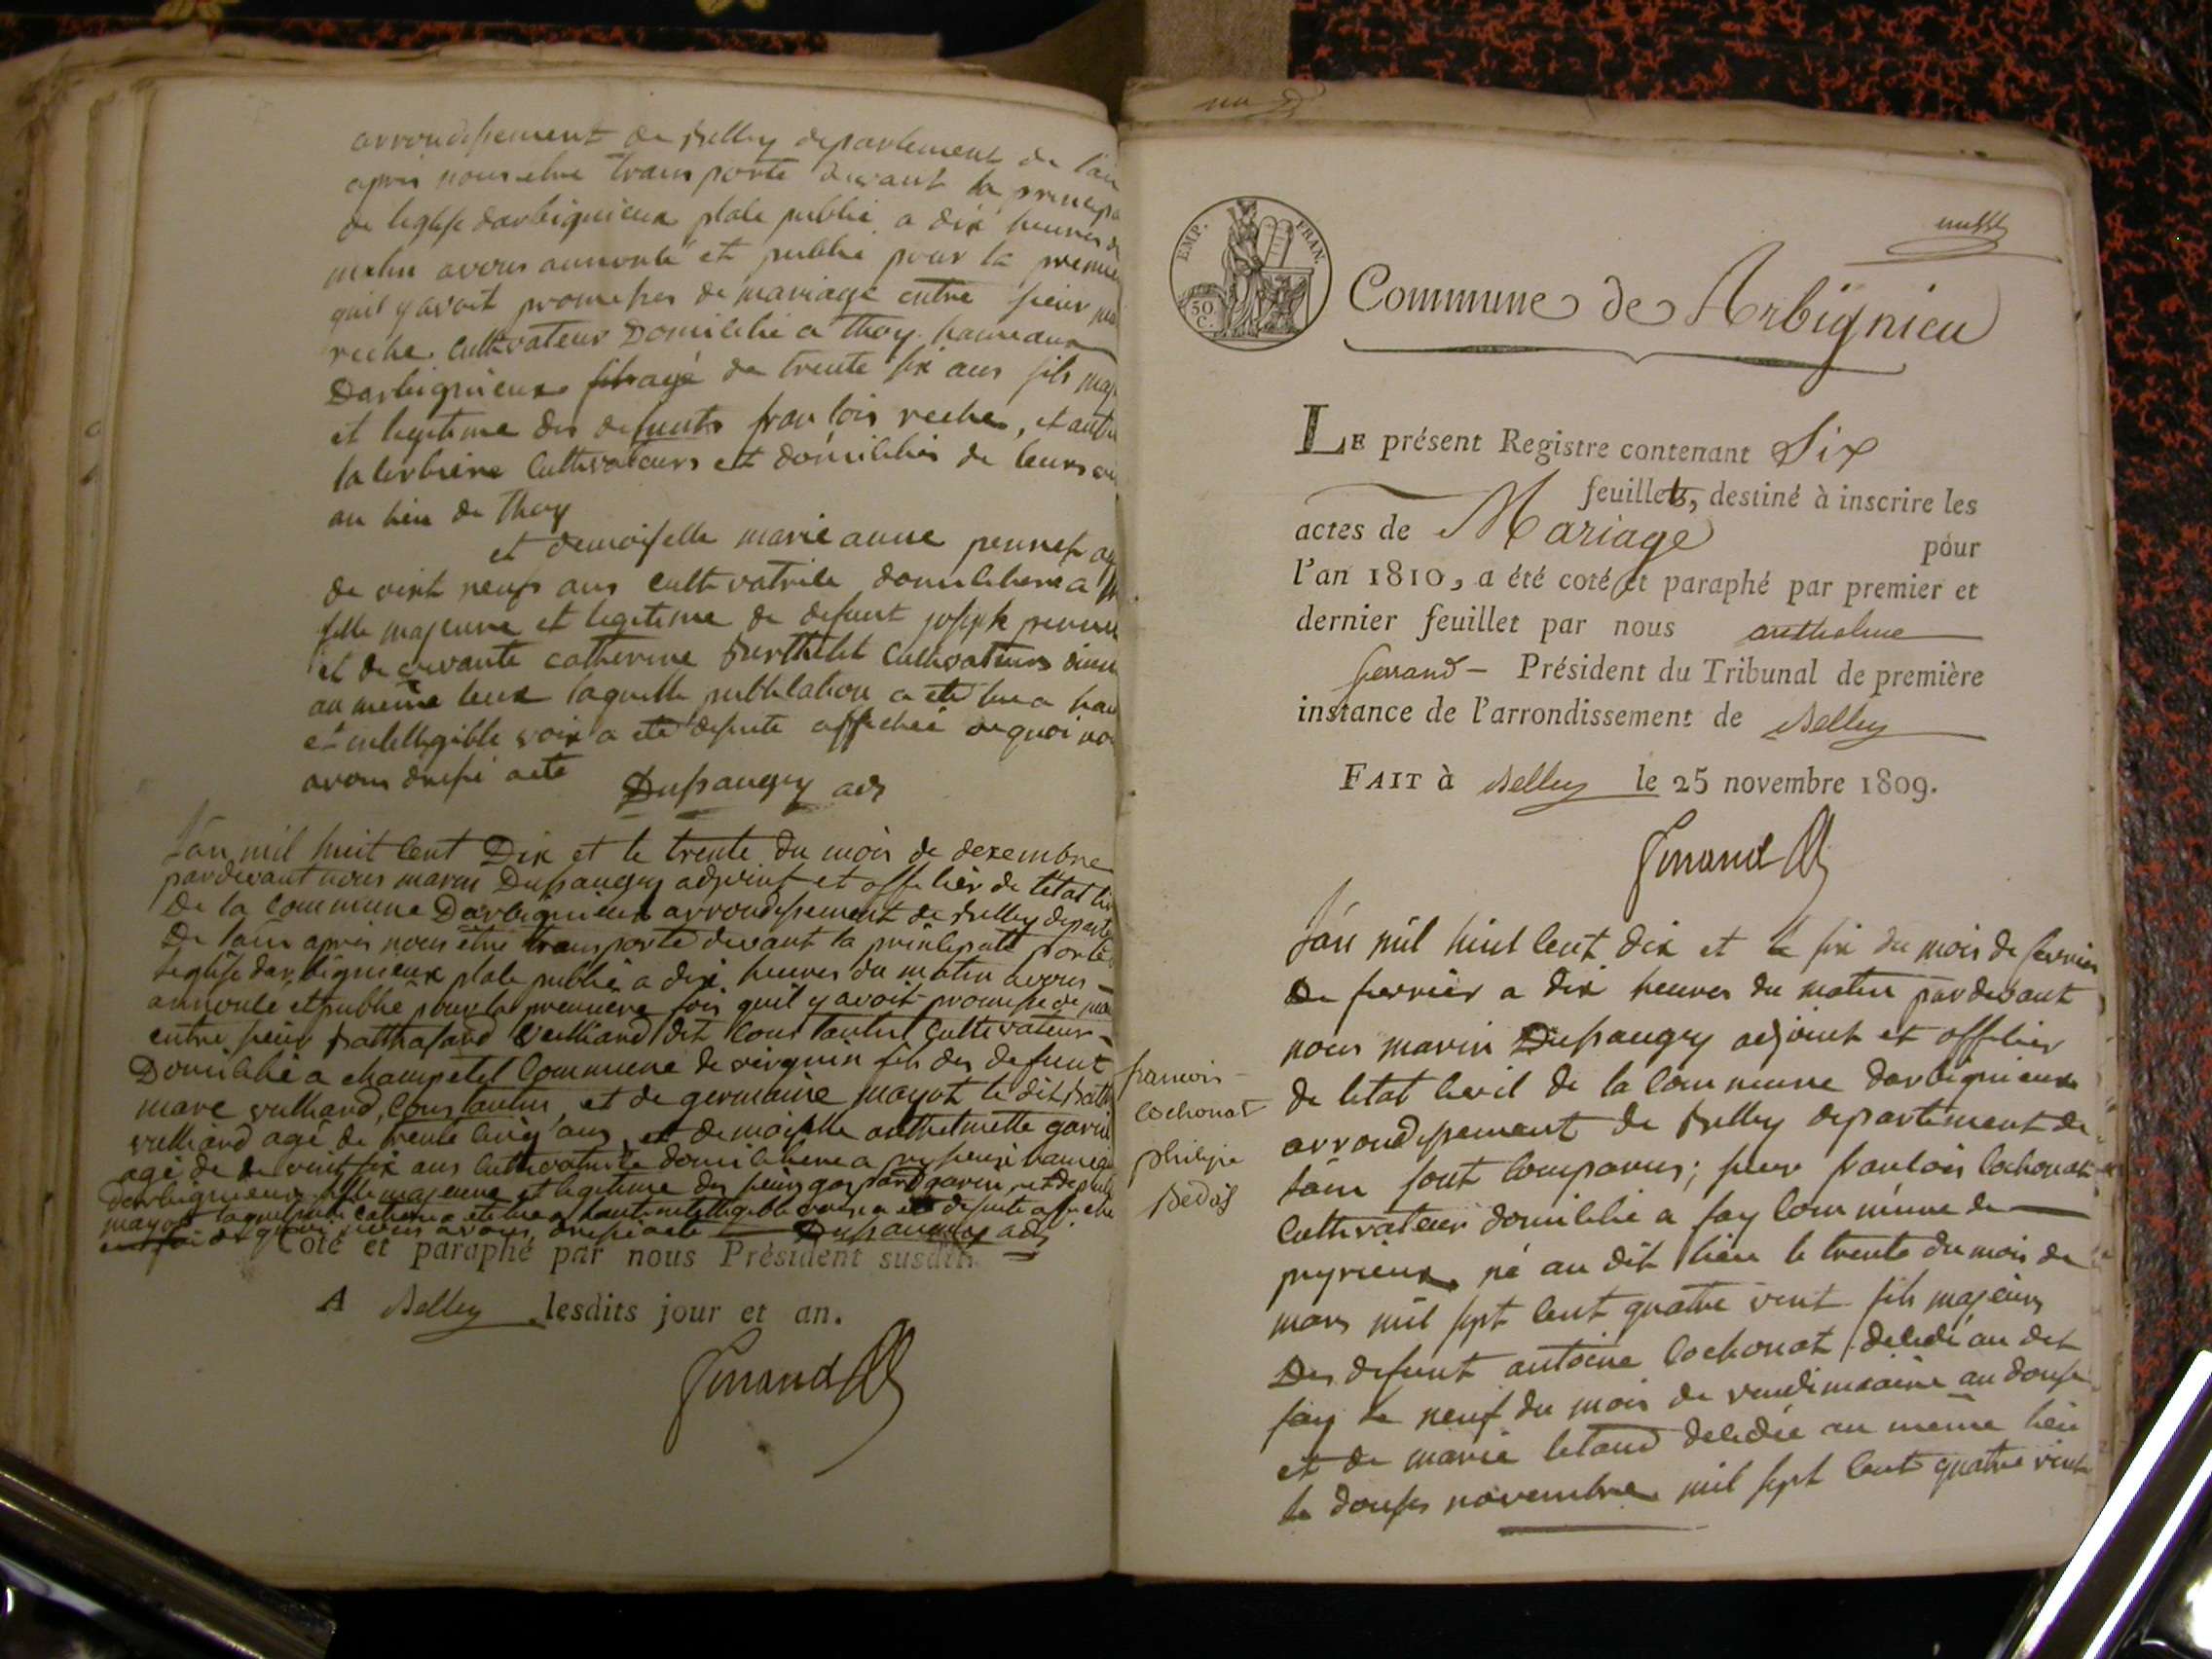 arrondissement de Belley departement de l'ain
apres nous etre transporté devant la principa
de leglise darbignieux place public a dix heures du
matin avons annoncé et publié pour la premie
quil y avoit promesses de mariage entre sieur
reche cultivateur Domicilié a thoy hameaux
Darbignieux agé de trente six ans fils maj
et legitime des defunts francois reche, et
cultivateurs et domiciliés de leurs
au lieu de Thoy
et demoiselle marie anne
de vint neufs ans cultivatrice domiciliere a
fille majeure et legitime de defunt joseph
et de vivante catherine Berthelet cultivateurs
au meme lieux laquelle publication a été lue a hau
et intelligible voix a ete desuite affichée de quoi nou
avons dressé acte Dussaugey adj
Lan mil huit cent Dix et le trente du mois de dexembre
pardevant nous marin Dussaugey adjoint et officier de letat
De la commune Darbignieux arrondissement de Belley depart
De lain apres nous etre transporté devant la principale porte
leglise darbignieux place public a dix heures du matin avons
annoncé et publié pour la premiere fois quil y avoit promesse de ma
entre sieur Balthasard vulliard dit Constantin cultivateur
Domicilié a champetel Commune de virignin fils des defunt
marc vulliard, Constantin, et de germaine mayot le dit Balth
vulliard agé de trente cinq ans, et demoiselle anthelmette garin
agé de vint six ans cultivatrice domiciliere a
Darbignieux fille majeure et legitime des sieur gaspard garin, et de
mayot laquelle publication a ete lue a haute intelligible voix a ete desuite affiche
de quoi nous avons dressé acte Dussaugey adj
Coté et paraphé par nous Président susdit.
A Belley lesdits jour et an.
un
EMP. FRAN.
50 C.
Commune de Arbignieu
LE présent Registre contenant Six
feuillets, destiné à inscrire les
actes de Mariage pour
l'an 1810, a été coté et paraphé par premier et
dernier feuillet par nous anthelme
ferrand — Président du Tribunal de première
instance de l'arrondissement de Belley
FAIT à Belley le 25 novembre 1809.
francois
cochonat
philipe
Bedoz
Lan mil huit cent dix et le six du mois de fevrier
De fevrier a dix heures du matin pardevant
nous marin Dussaugey adjoint et officier
de letat civil de la commune darbignieux
arrondissement de Belley departement de
lain sont comparus; sieur francois cochonat
cultivateur domicilié a fay commune de
peyrieux né au dit lieu le trente du mois de
mars mil sept cent quatre vint fils majeurs
Des defunt antoine cochonat decedé au dit
fay le neuf du mois de vendimiaire an douse
et de marie decedée au meme lieu
le douses novembre mil sept cent quatre vint